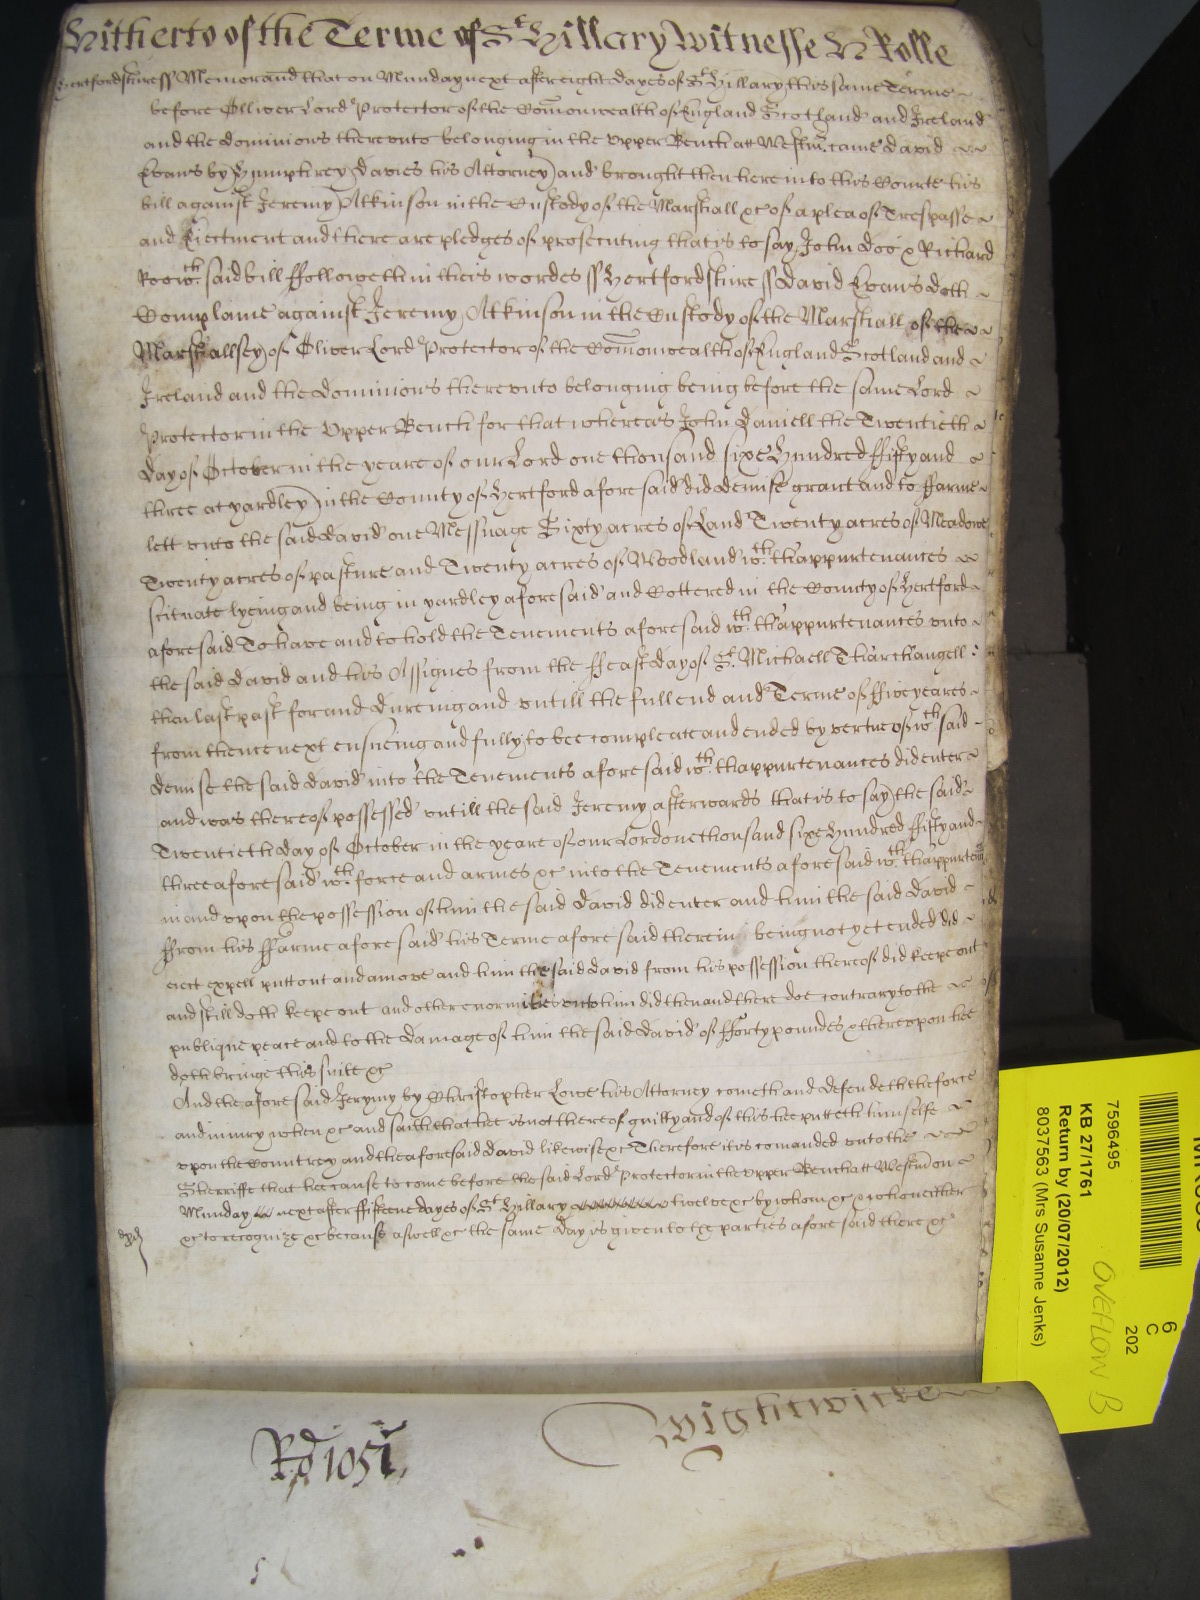 Hitherto of the Terme of St Hillary Witnesse H Rolle
Hertfordshire ss Memorand that on Munday next after eight dayes of St Hillary this same Terme
before Oliver Lord Protector of the Comonwealth of England Scotland and Ireland
and the dominions thereunto belonging in the upper Bench att Westmr. came david
Evans by Humphrey davies his Attorney and brought then here into this Courte his
bill against Jeremy Atkinson in the Custody of the Marshall &c of a plea of Trespasse
and Eiectment and there are pledges of prosecuting that is to say John doo & Richard
Roo wch. said bill ffolloweth in theis wordes ss Hertfordshire ss david Evans doth
Complaine against Jeremy Atkinson in the Custody of the Marshall of the
Marshallsey of Oliver Lord Protector of the Comonwealth of England Scotland and
Ireland and the dominions thereunto belonging being before the same Lord
Protector in the Upper Bench for that whereas John daniell the Twentieth
day of October in the yeare of our Lord one thousand sixe Hundred ffifty and
three at yardley in the County of Hertford aforesaid did demise grant and to ffarme
lett unto the said david one Messuage Sixty acres of Land Twenty acres of Meadowe
Twenty acres of pasture and Twenty acres of Woodland wth. thappurtenances
scituate lyeing and being in yardley aforesaid and Cottered in the County of Hertford
aforesaid To have and to hold the Tenements aforesaid wth. thappurtenances unto
the said david and his Assignes from the ffeast day of St. Michaell Tharchangell
then last past for and dureing and untill the full end and Terme of ffive yeares
from thence next ensueing and fully to bee compleate and ended by vertue of wch said
demise the said david into the Tenements aforesaid wth. thappurtenances did enter
and was thereof possessed untill the said Jeremy afterwards that is to say the said
Twentieth day of October in the yeare of our Lord one thousand sixe Hundred ffifty and
three aforesaid wth. force and armes &c into the Tenements aforesaid wth. thappurten
in and upon the possession of him the said david did enter and him the said david
ffrom his ffarme aforesaid his Terme aforesaid therein being not yet ended did
eiect expell putt out and amove and him the said david from his possession thereof did keepe out
and still doth keepe out and other enormities unto him did then and there doe contrary to the
publique peace and to the damage of him the said david of fforty poundes & thereupon hee
doth bringe this suite &c
And the aforesaid Jerymy by Christopher Lowe his Attorney cometh and defendeth the force
and iniury when &c and saith that hee is not thereof guilty and of this hee putteth himselfe
upon the Countrey and the aforesaid david likewise &c Therefore it is comanded unto the
Sherriffe that hee cause to come before the said Lord Protector in the upper Bench att Westmr on
Munday next after ffifteene dayes of St Hillary twelve &c by whom &c who neither
&c to recognize &c because aswell &c the same day is given to the parties aforesaid there &c
Ro 1051
Wightwicke
7596495
KB 27/1761
Return by (20/07/2012)
8037563 (Mrs Susanne Jenks)
6
C
202
OVERFLOW B